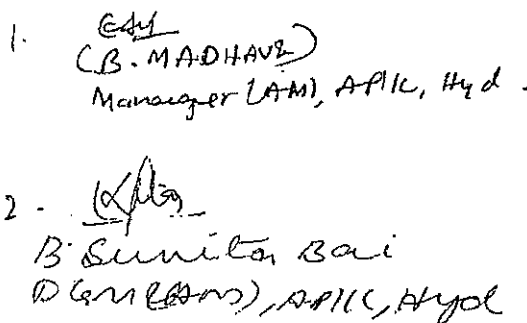 1.
(B. MADHAVI)
Manager (AM), APIIC, Hyd.
2.
B. Sunita Bai
DGM(AMS), APIIC, Hyd